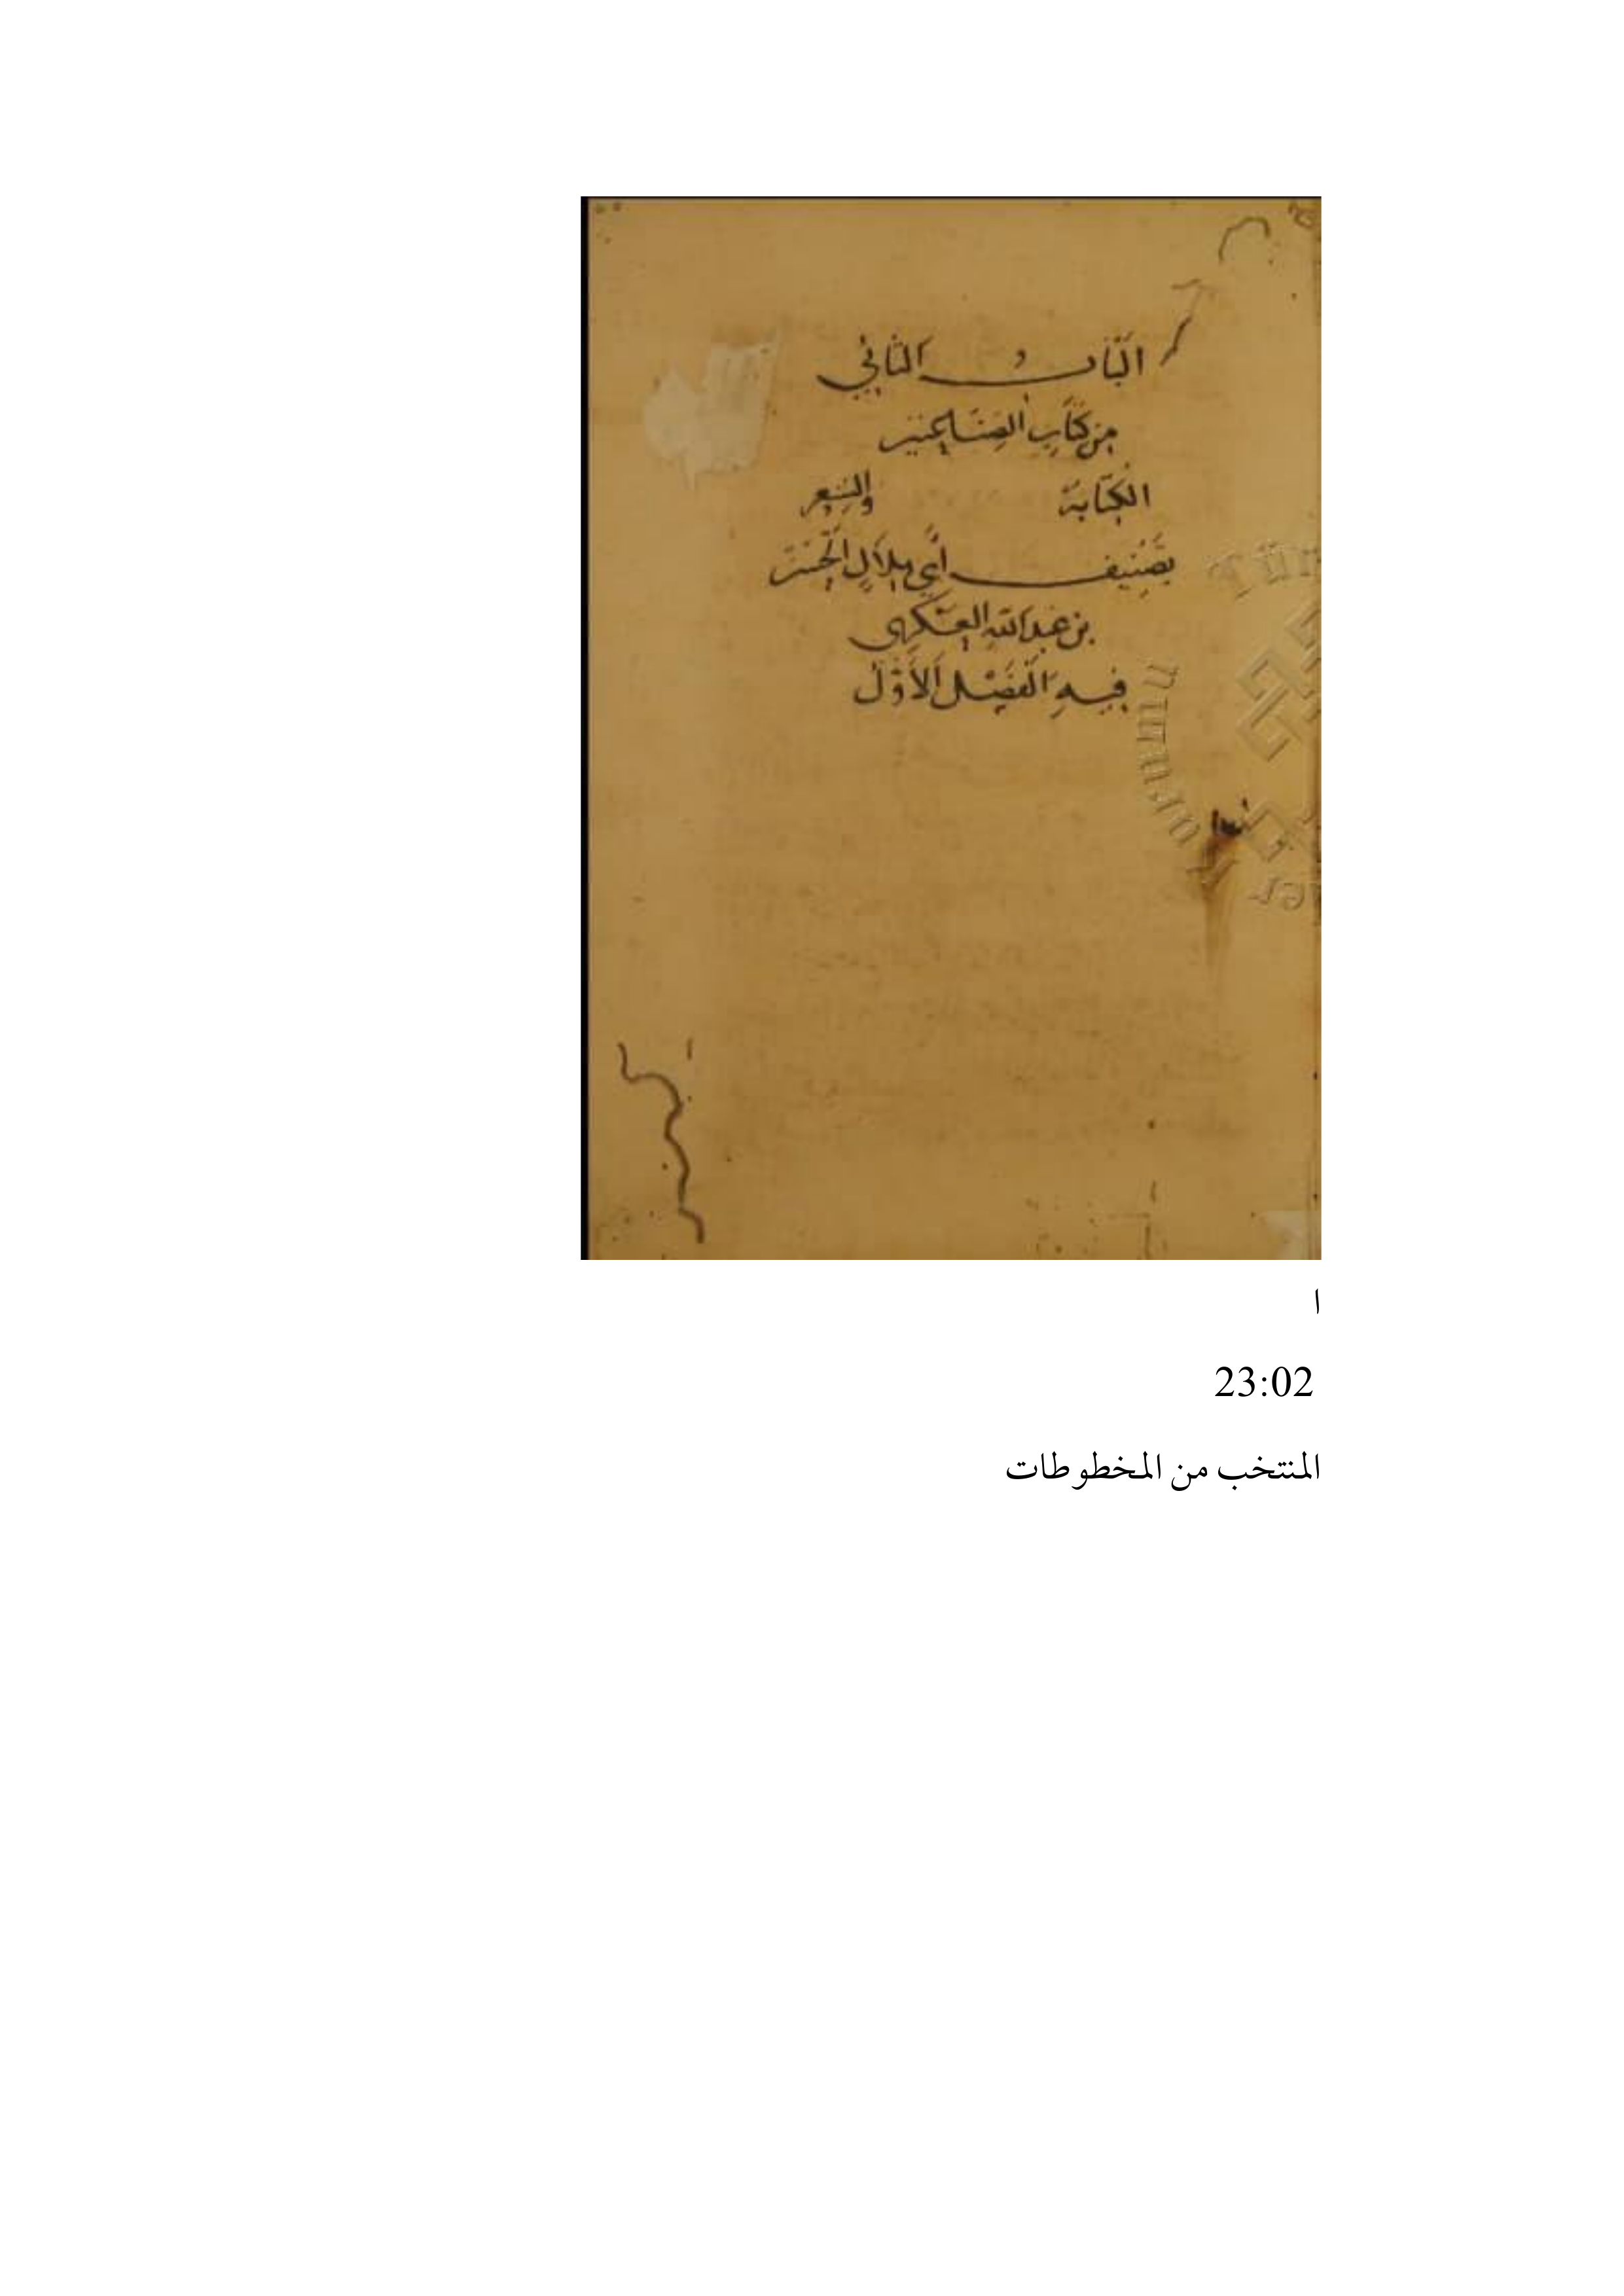 الباب الثاني
من كتاب الصناعتين
الكتابة والشعر
تصنيف أبي هلال الحسن
بن عبد الله العسكري
فيه الفصل الأول
ا
23:02
المنتخب من المخطوطات